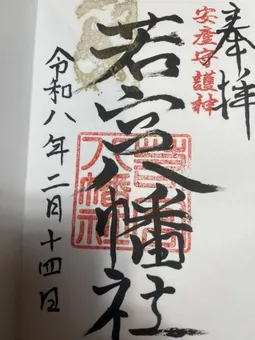 奉拝
安産守護神
若宮八幡社
若宮八幡社
令和八年二月十四日